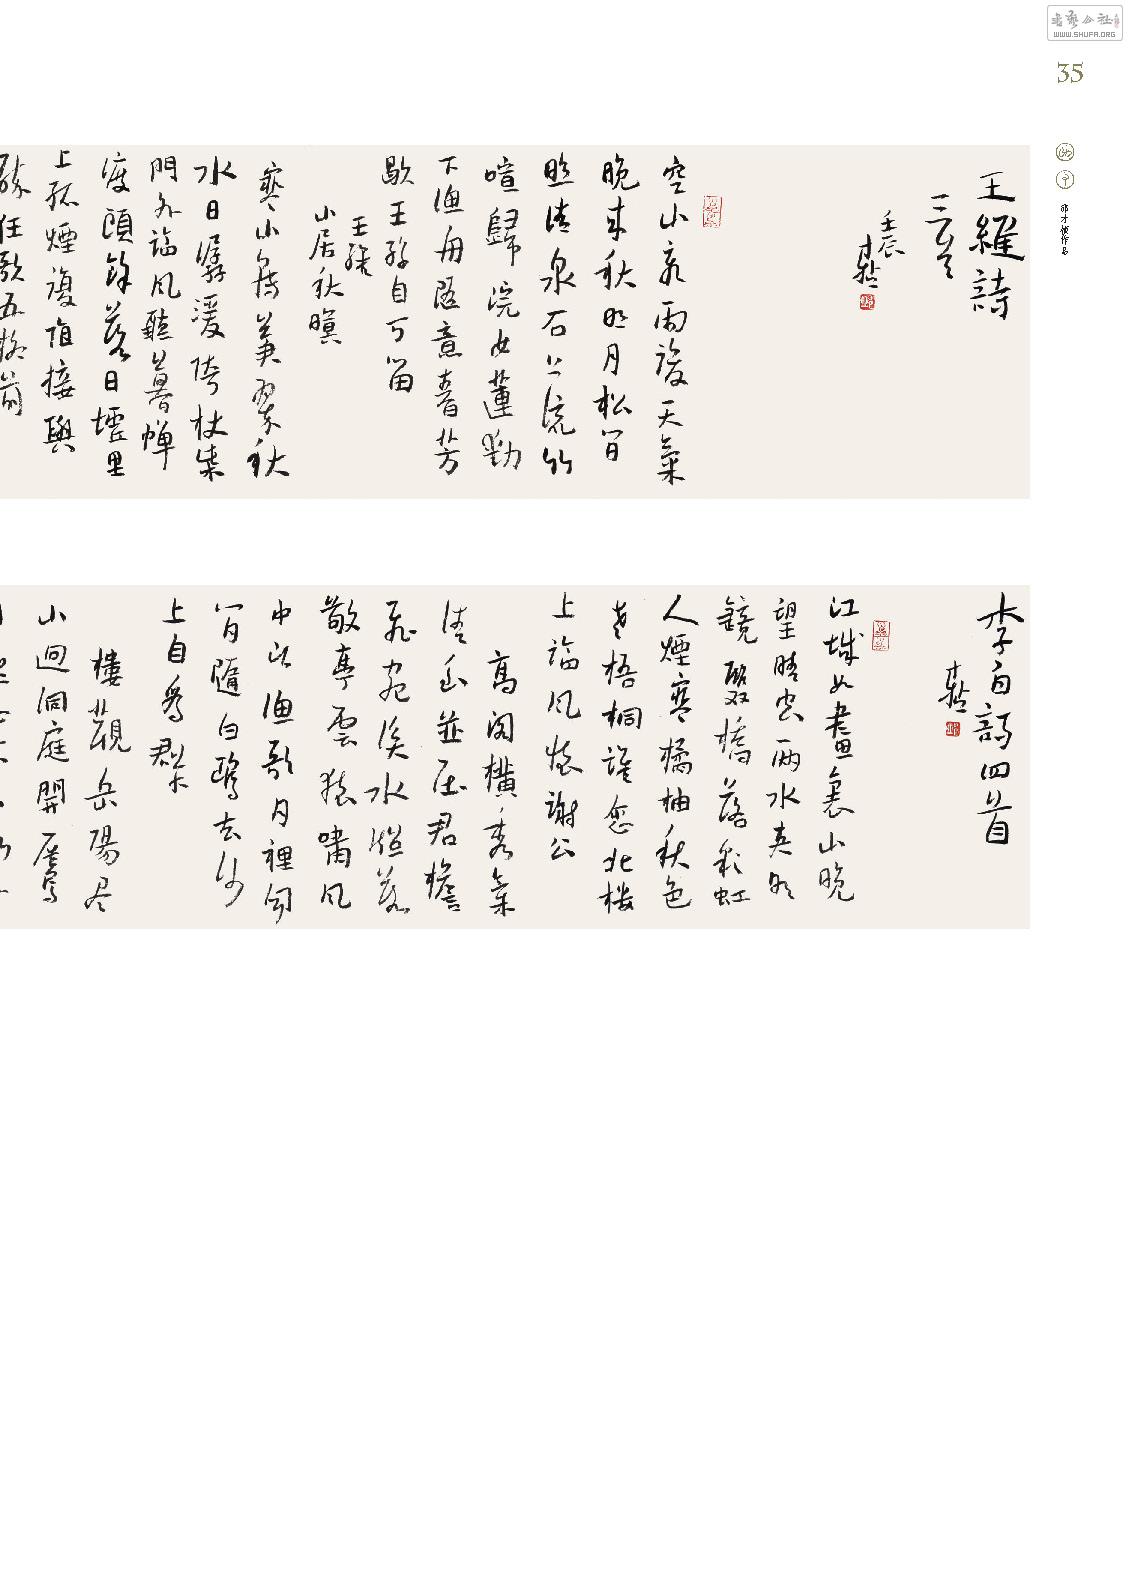 书艺公社
WWW.SHUFA.ORG
35
王維詩
三首
壬辰
空山新雨後天氣
晚來秋明月松間
照清泉石上流竹
喧歸浣女蓮動
下漁舟隨意春芳
歇王孫自可留
王維
山居秋暝
寒山轉蒼翠秋
水日潺湲倚杖柴
門外臨風聽暮蟬
渡頭餘落日墟里
上孤煙復值接輿
醉狂歌五柳前
李白詩四首
江城如畫裏山晚
望晴空兩水夾明
鏡雙橋落彩虹
人煙寒橘柚秋色
老梧桐誰念北樓
上臨風懷謝公
高閣橫秀氣
清幽並在君檐
飛宛溪水牕落
敬亭雲猿嘯風
中斷漁歌月裡聞
閒隨白鷗去沙
上自為群
樓觀岳陽盡
川迥洞庭開雁